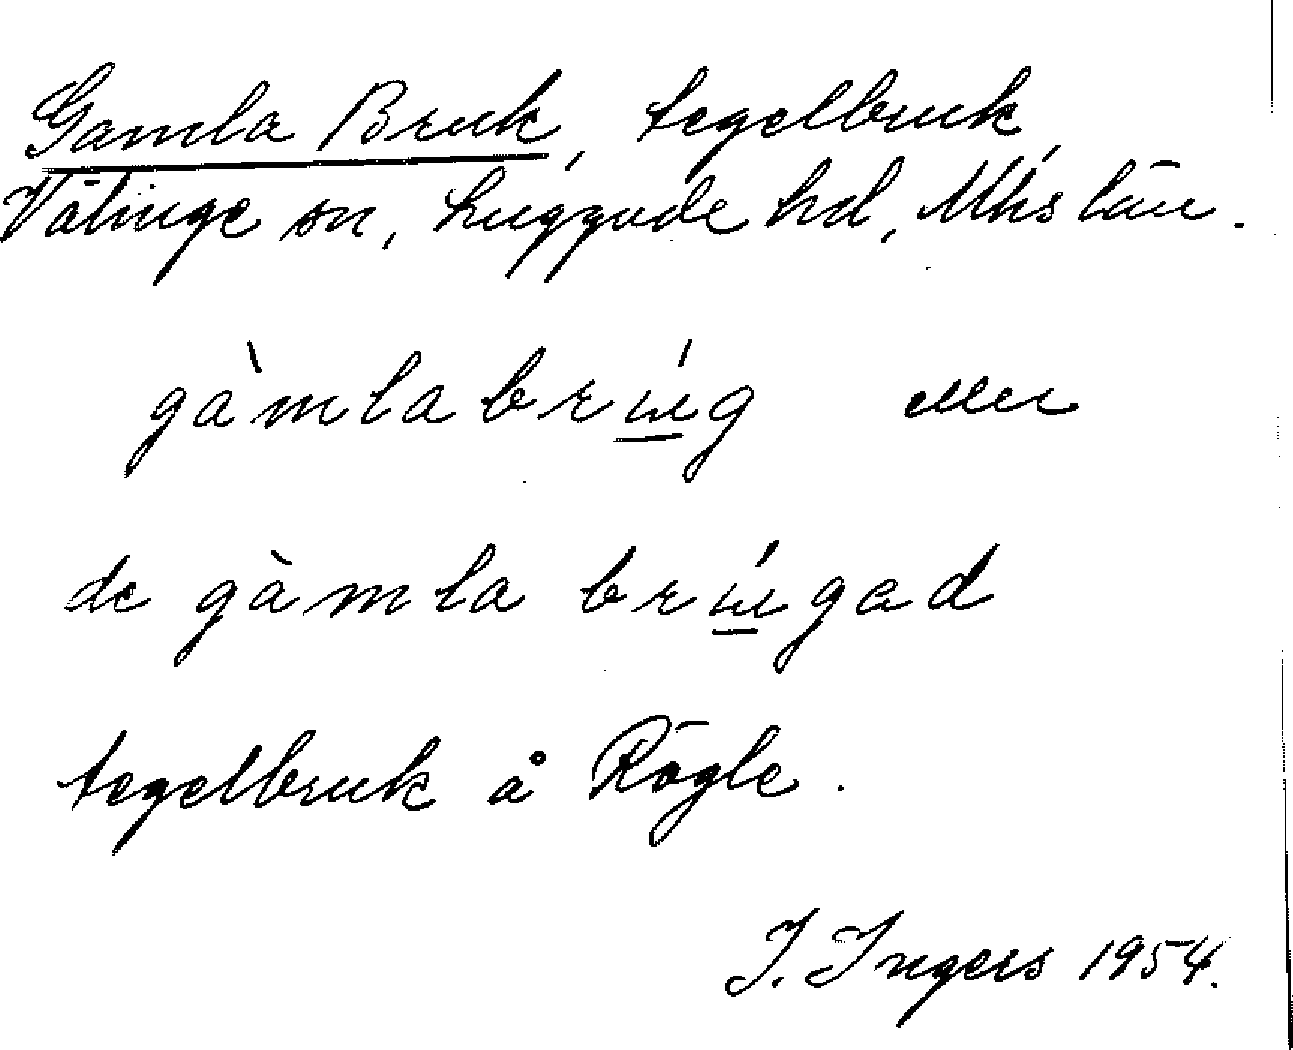 Gamla Bruk, tegelbruk,
Välinge sn, Luggude hd, Mhs län.
gàmlabrú̲g eller
de gàmla brú̲gad
tegelbruk å Rögle.
I. Ingers 1954.